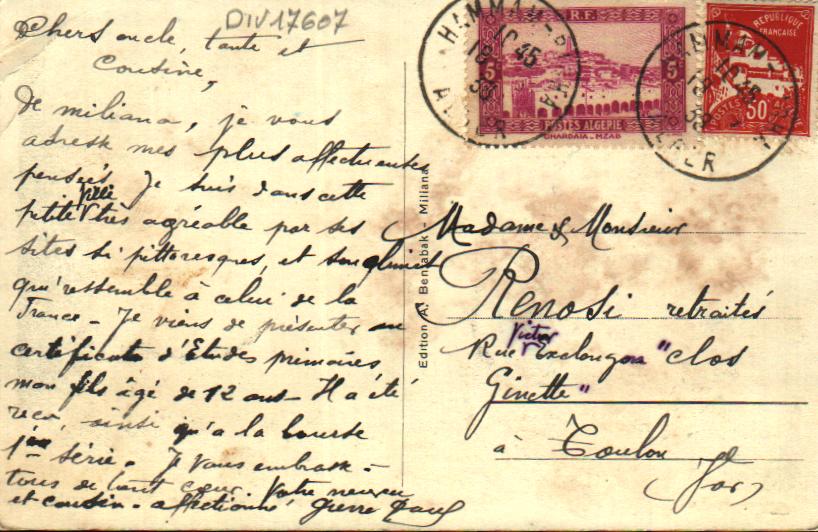 DIV17607
Chers oncle, tante et
Cousine,
De miliana, je vous
adresse mes plus affectueuses
pensées Je suis dans cette
petite ville très agréable par ses
sites si pittoresques, et son climat
qu'ressemble à celui de la
France - Je viens de présenter au
certificats d'Etudes primaires
mon fils âgé de 12 ans - Il a été
recu, ainsi qu'a la bourse
1ère série - Je vous embrasse -
tous de tout cœur. Votre neveu
et cousin - affectionné, Pierre Paul
Edition A. Benhabak - Miliana
HAMMAM-R
10 45
ALGER
R.F.
5 5
POSTES ALGERIE
GHARDAIA-MZAB
REPUBLIQUE
FRANCAISE
POSTES ALGERIE
50c
HAMMAM-
10 45
ALGER
Madame & Monsieur
Renosi retraités
Rue Victor "Clos
Ginette"
à Toulon
(Var)